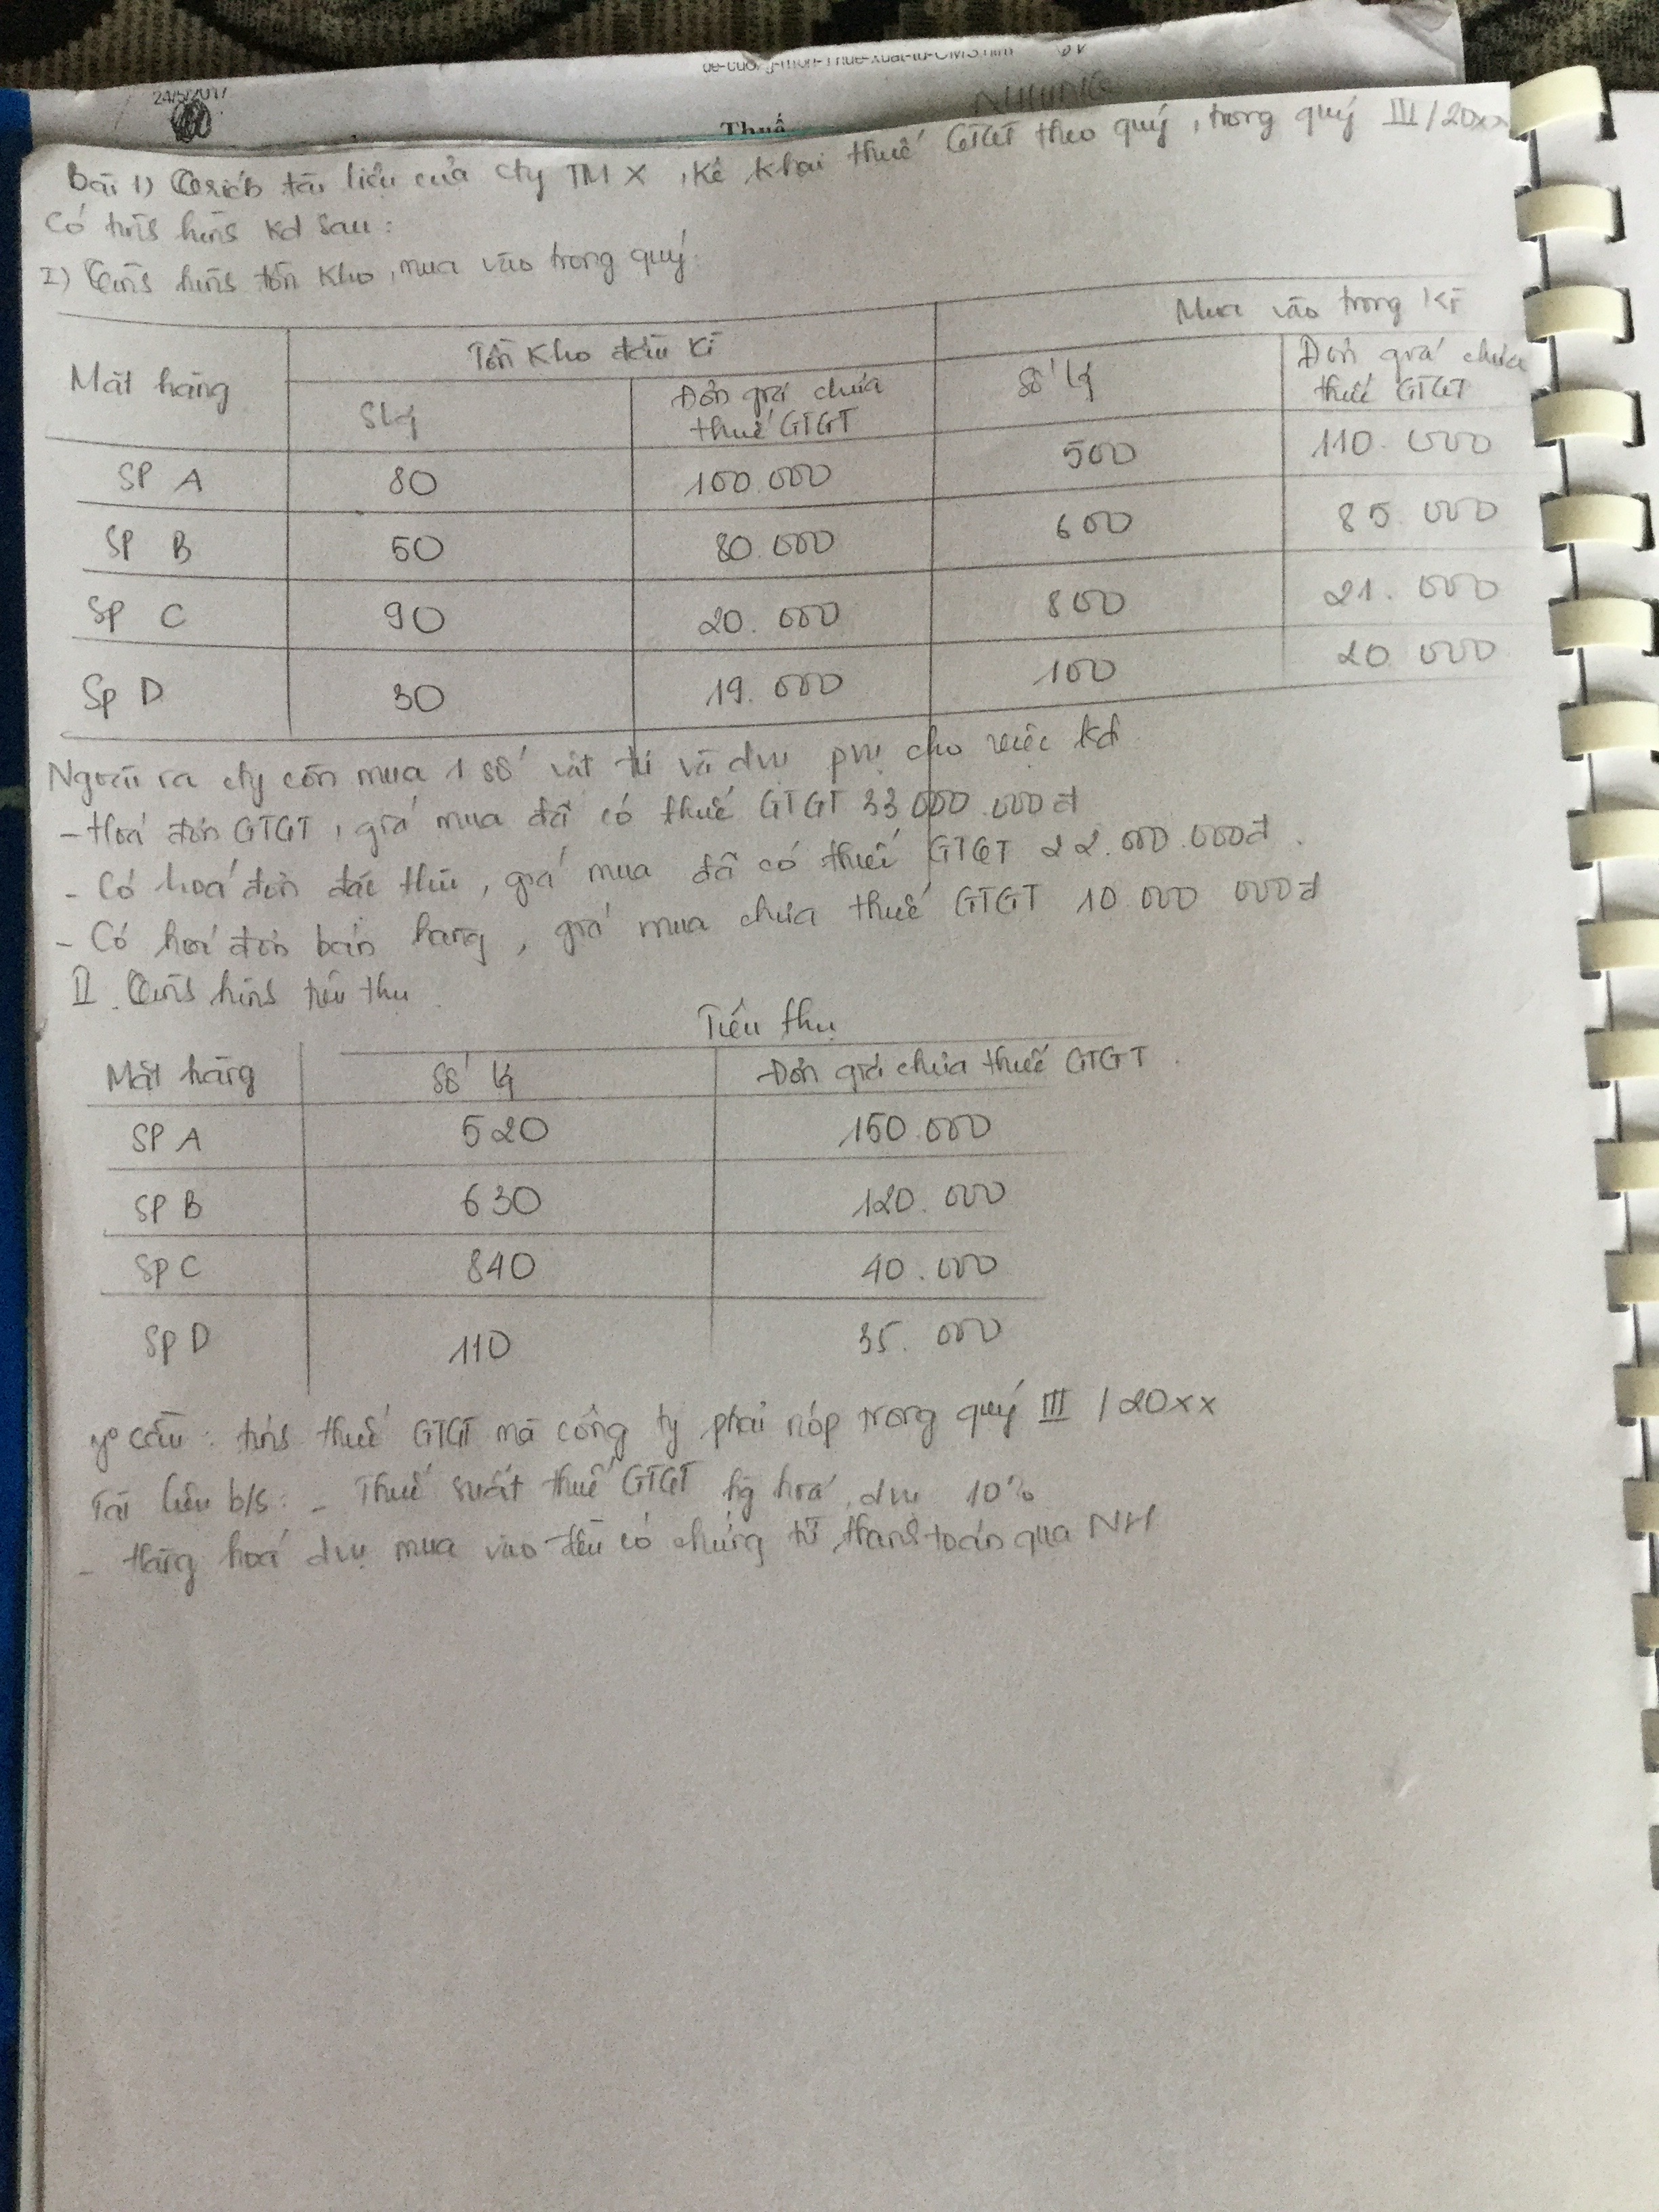 de-cuong-mon-Thue-xuat-tu-CMS.htm
24/5/2017
Thuế
NHUNG
Bài 1) Trích tài liệu của cty TM X, kê khai thuế GTGT theo quý, trong quý III/20xx
Có tình hình kd sau:
I) Tình hình tồn kho, mua vào trong quý.
Mặt hàng Tồn kho đầu kì Mua vào trong kì
Slg Đơn giá chưa thuế GTGT Số lg Đơn giá chưa thuế GTGT
SP A 80 100.000 500 110.000
SP B 50 80.000 600 85.000
SP C 90 20.000 800 21.000
SP D 30 19.000 100 20 000
Ngoài ra cty còn mua 1 số vật tư và dvụ pvụ cho việc kd
- Hoá đơn GTGT, giá mua đã có thuế GTGT 33 000.000đ
- Có hoá đơn đặc thù, giá mua đã có thuế GTGT 22.000.000đ.
- Có hoá đơn bán hàng, giá mua chưa thuế GTGT 10 000 000đ
II. Tình hình tiêu thụ
Tiêu thụ
Mặt hàng Số lg Đơn giá chưa thuế GTGT
SP A 520 150.000
SP B 630 120.000
SP C 840 40.000
SP D 110 35.000
yº cầu: tính thuế GTGT mà công ty phải nộp trong quý III /20xx
Tài liệu b/s: - Thuế suất thuế GTGT hg hoá, dvụ 10%
- Hàng hoá dvụ mua vào đều có chứng từ thanh toán qua NH